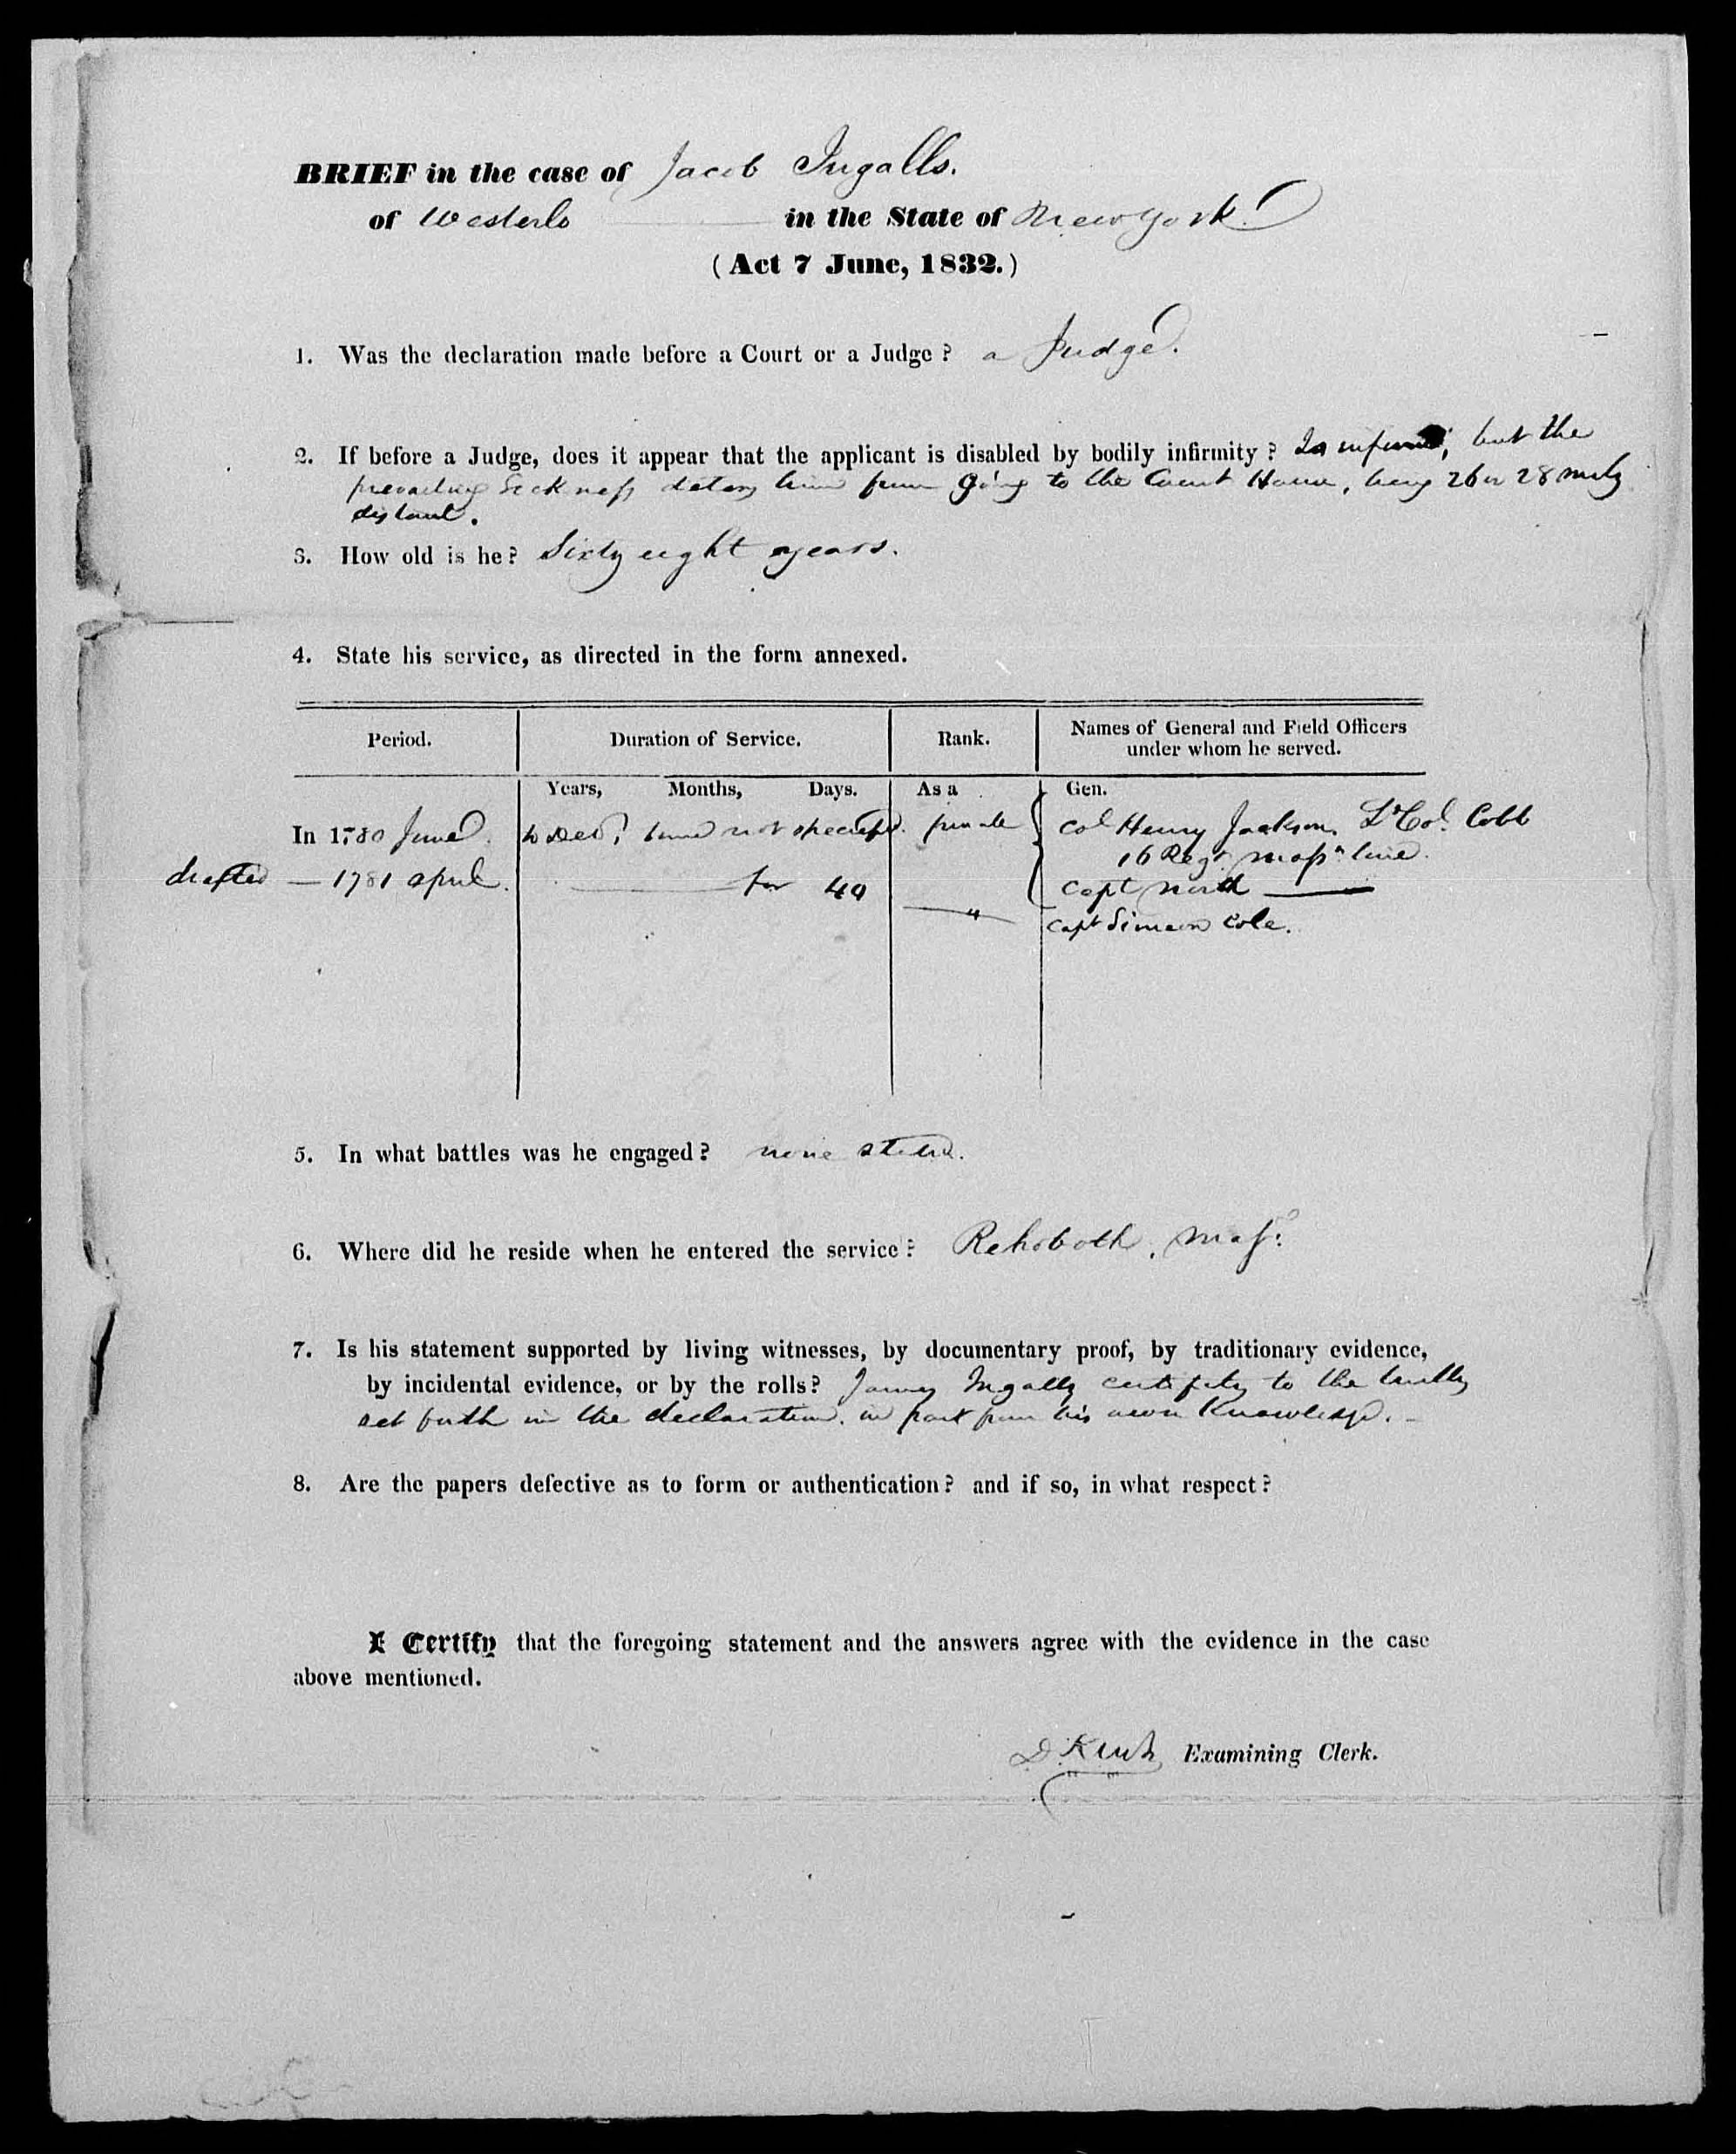 BRIEF in the case of Jacob Ingalls.
of Westerlo in the State of New York.
(Act 7 June, 1832.)
1. Was the declaration made before a Court or a Judge? a Judge.
2. If before a Judge, does it appear that the applicant is disabled by bodily infirmity? Is infirm; but the
prevailing Sickness deters him from going to the Court House, being 26 or 28 miles
distant.
3. How old is he? Sixty eight years.
4. State his service, as directed in the form annexed.
Period. Duration of Service. Rank. Names of General and Field Officers
under whom he served.
Years, Months, Days. As a Gen.
In 1780 June. to Decr. time not specified. private Col Henry Jackson, Lt Col. Cobb
16 Regt Massn line.
drafted — 1781 april. for 40 Capt North
" Capt Simeon Cole.
5. In what battles was he engaged? none stated.
6. Where did he reside when he entered the service? Rehoboth, Mass:
7. Is his statement supported by living witnesses, by documentary proof, by traditionary evidence,
by incidental evidence, or by the rolls? James Ingalls certifies to the truths
set forth in the declaration. in part from his own Knowledge.
8. Are the papers defective as to form or authentication? and if so, in what respect?
I Certify that the foregoing statement and the answers agree with the evidence in the case
above mentioned.
D. Examining Clerk.